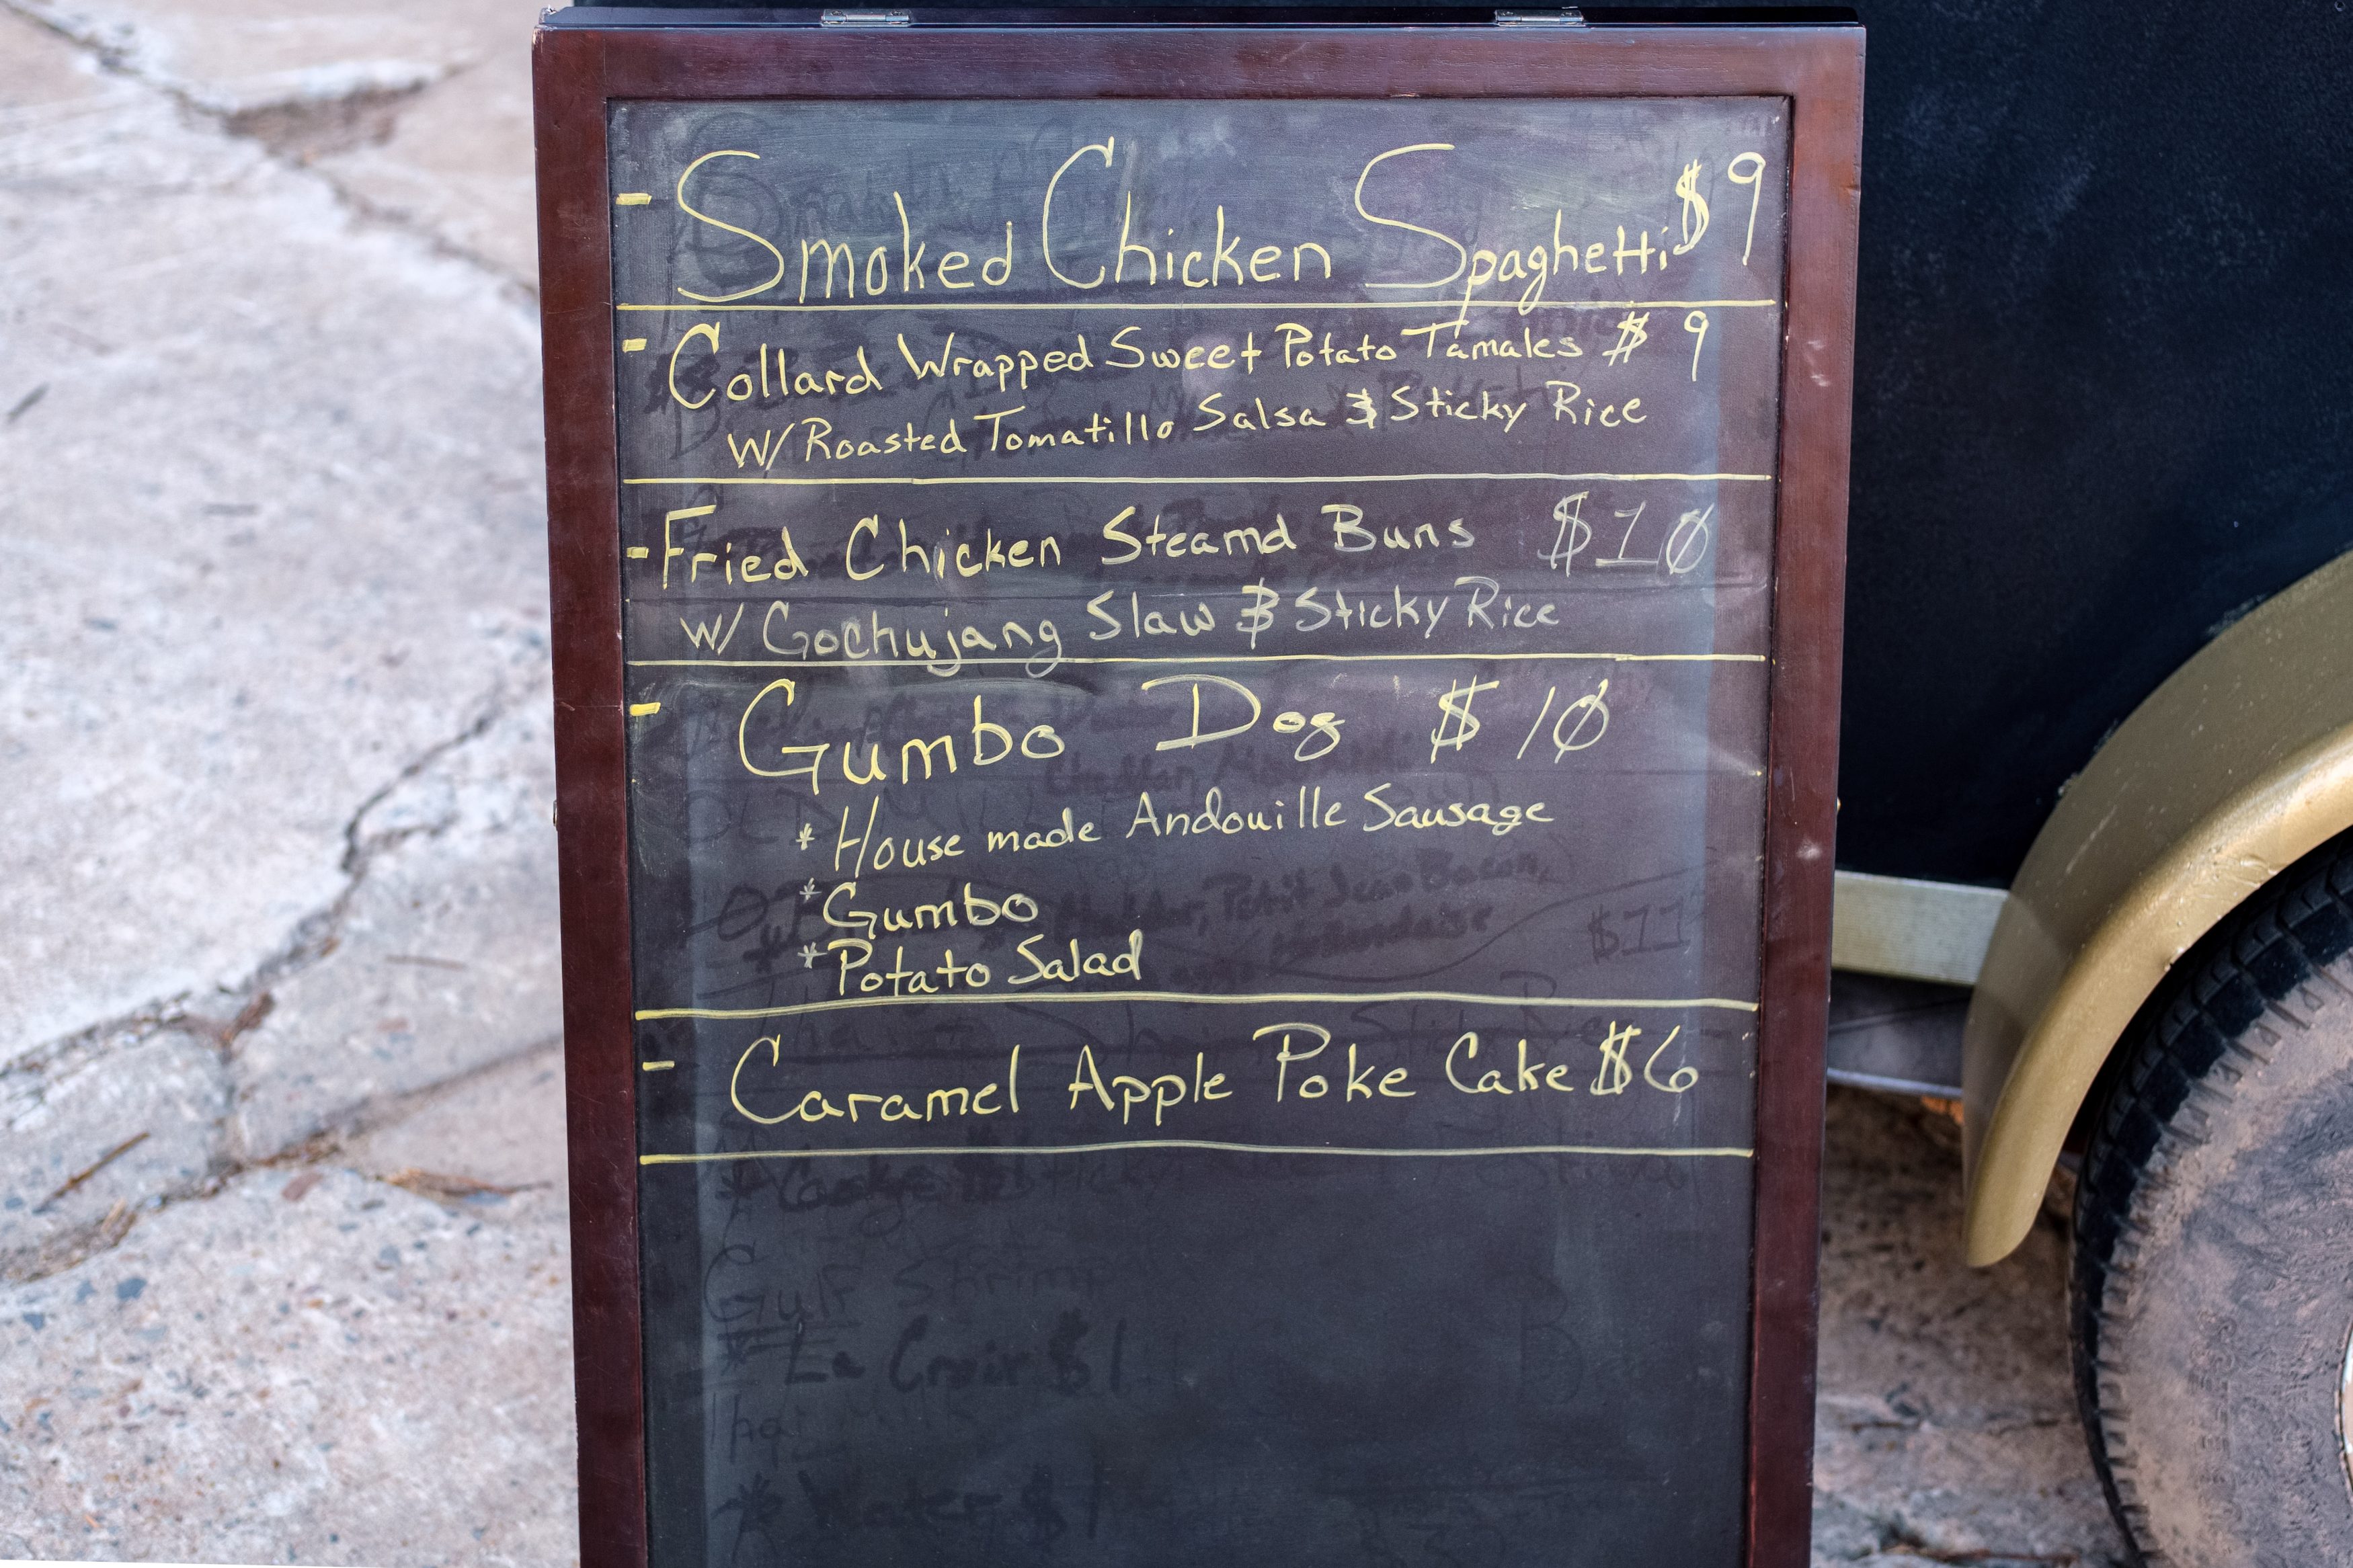 - Smoked Chicken Spaghetti $9
- Collard Wrapped Sweet Potato Tamales $9
W/ Roasted Tomatillo Salsa & Sticky Rice
- Fried Chicken Steamd Buns $10
w/ Gochujang Slaw & Sticky Rice
- Gumbo Dog $10
* House made Andouille Sausage
* Gumbo
* Potato Salad
- Caramel Apple Poke Cake $6
Gulf Shrimp
* La Croix $1
* Water $1